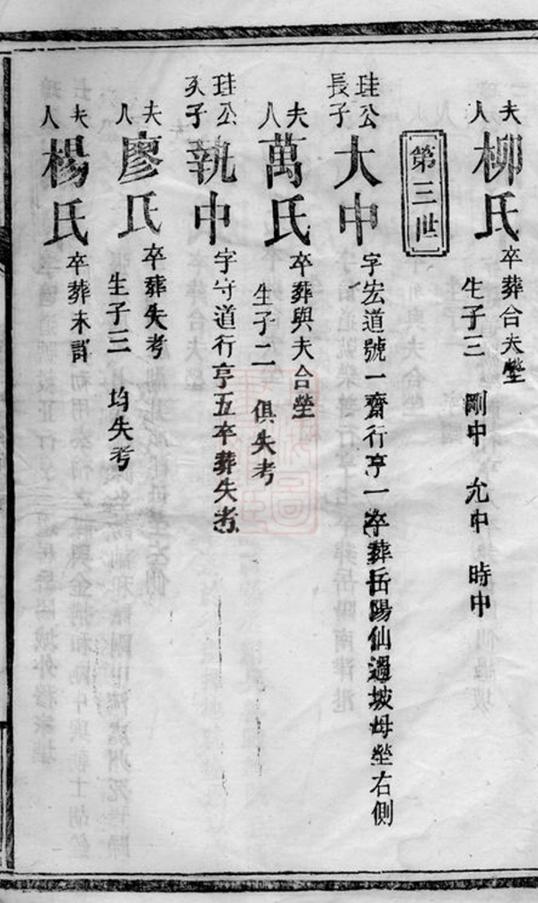 夫人柳氏卒葬合夫塋
生子三 剛中 允中 時中
第三世
珪公長子大中字宏道號一齋行亨一卒葬岳陽仙過坡母塋右側
夫人萬氏卒葬與夫合塋
生子二 俱失考
珪公次子執中字守道行亨五卒葬失考
夫人廖氏卒葬失考
生子三 均失考
夫人楊氏卒葬未詳